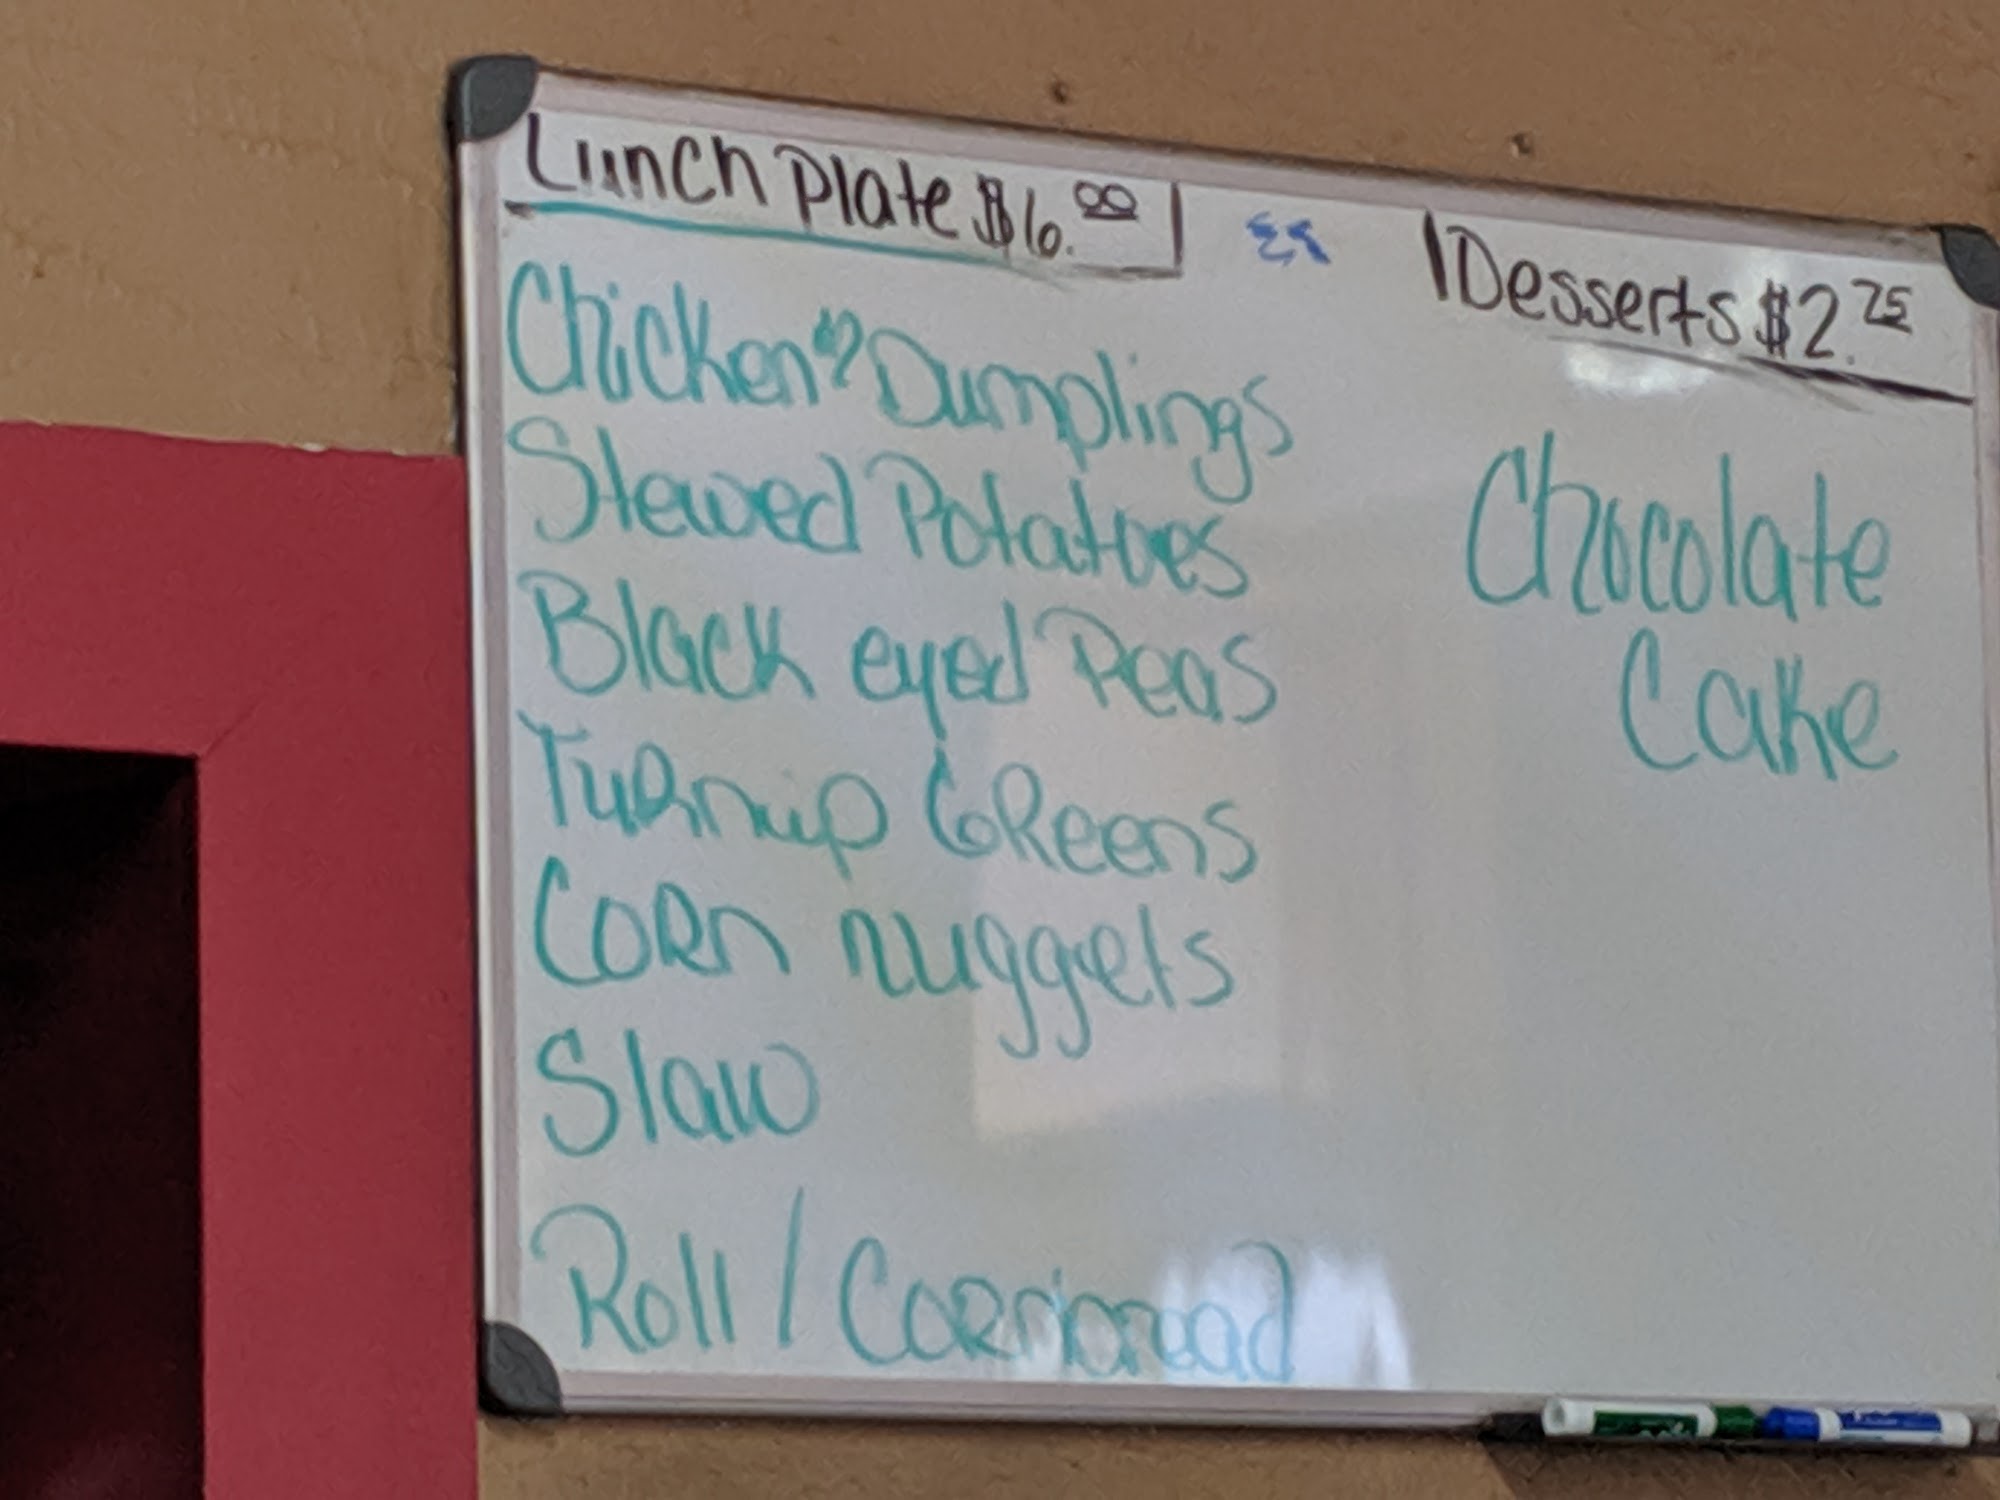 Lunch Plate $6.00
Chicken & Dumplings
Stewed Potatoes
Black eyed Peas
Turnip Greens
Corn nuggets
Slaw
Roll / Cornbread
Desserts $2.75
Chocolate
Cake